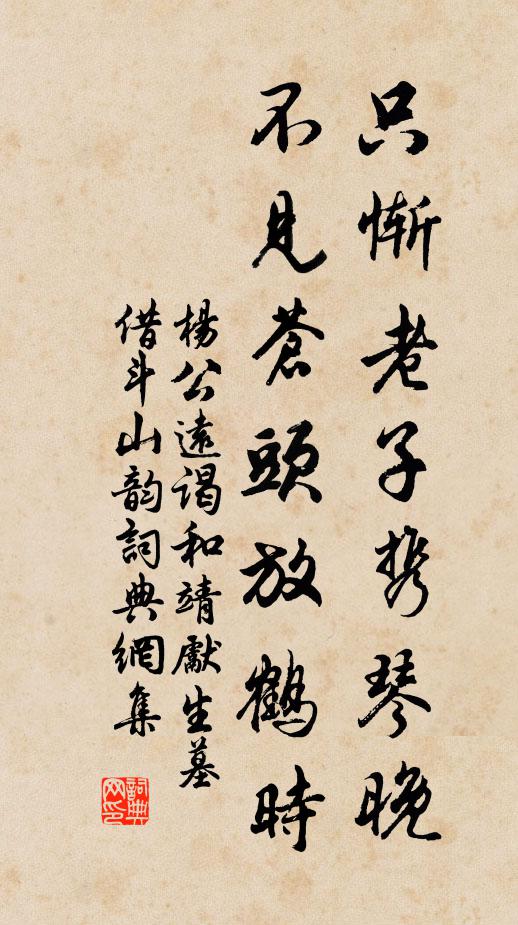 只慚老子携琴晚
不見蒼頭放鶴時
楊公遠謁和靖處生墓
借斗山韵詞典網集
詞典网印